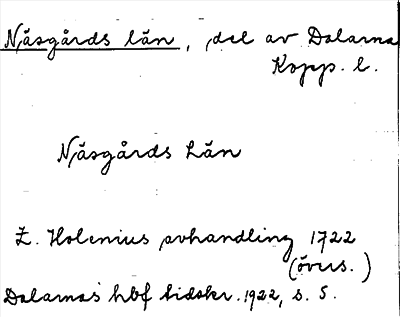 Näsgårds län, del av Dalarna
Kopp. l.
Näsgårds Län
E. Holenius avhandling 1722
(övers.)
Dalarnas hbf tidskr. 1922, s. 5.